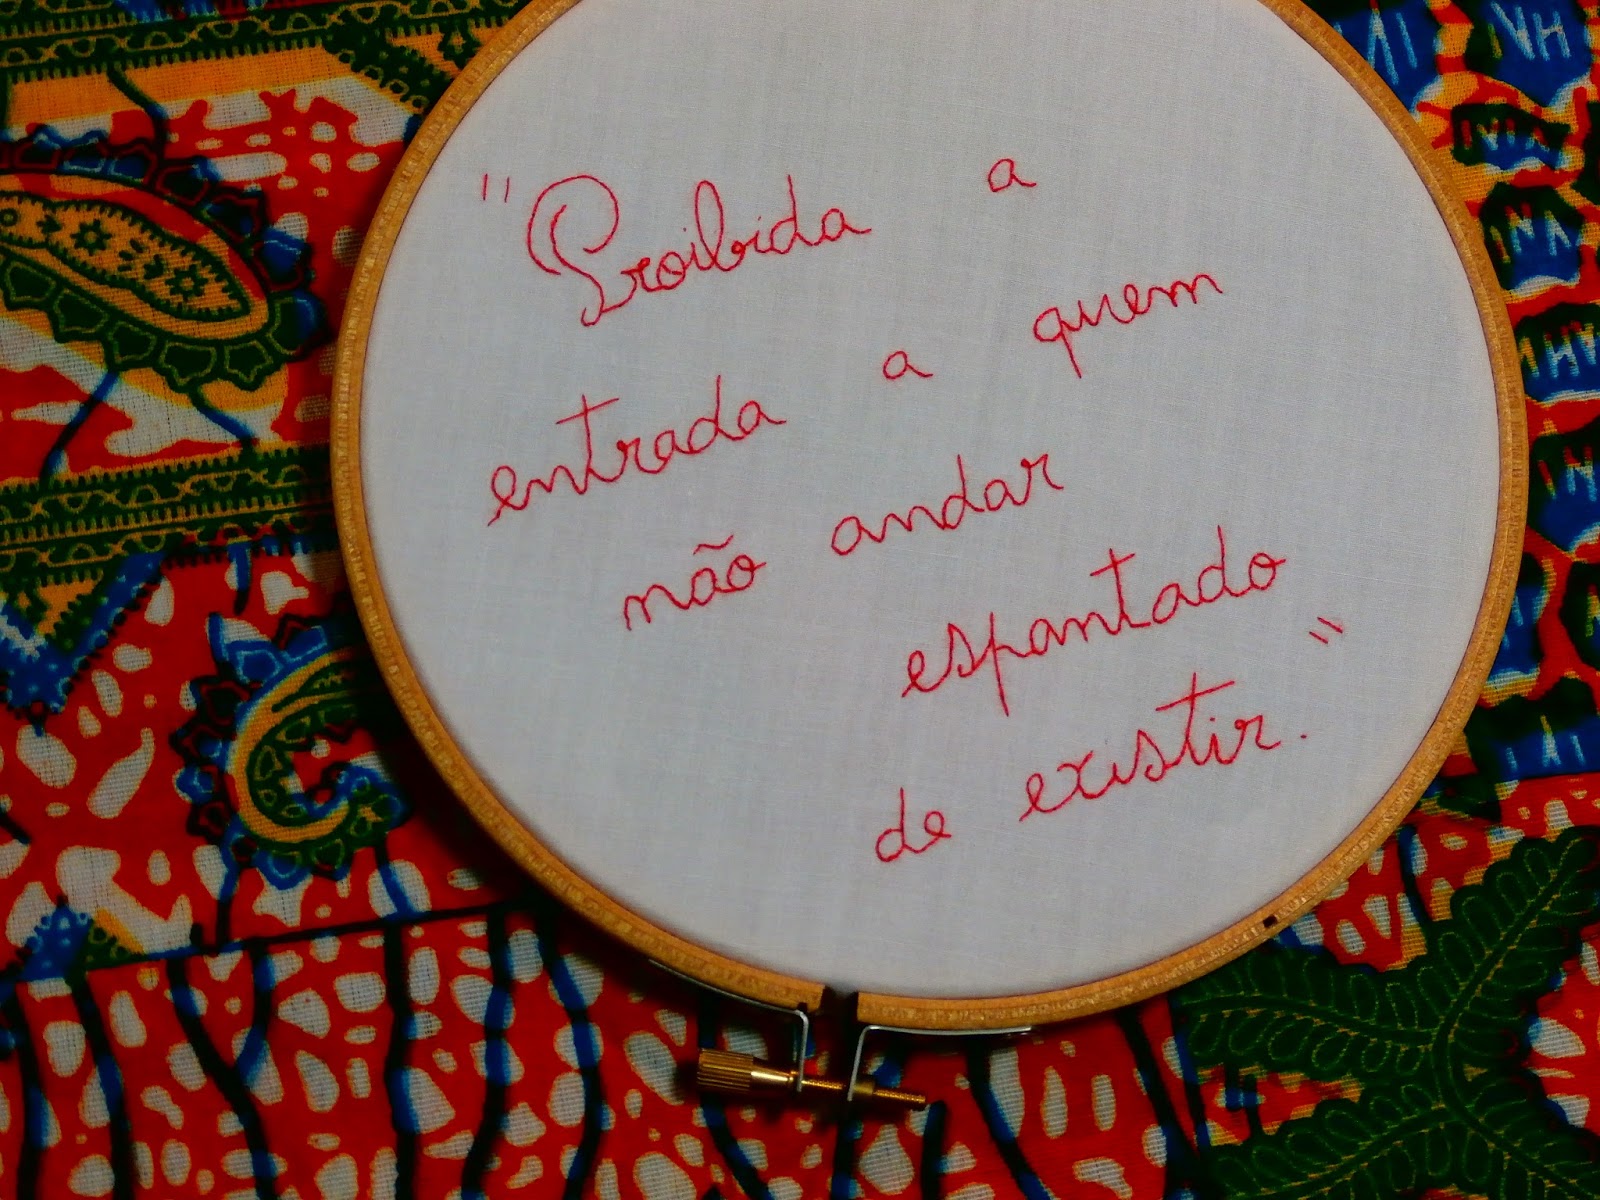 "Proibida a
entrada a quem
não andar
espantado
de existir."